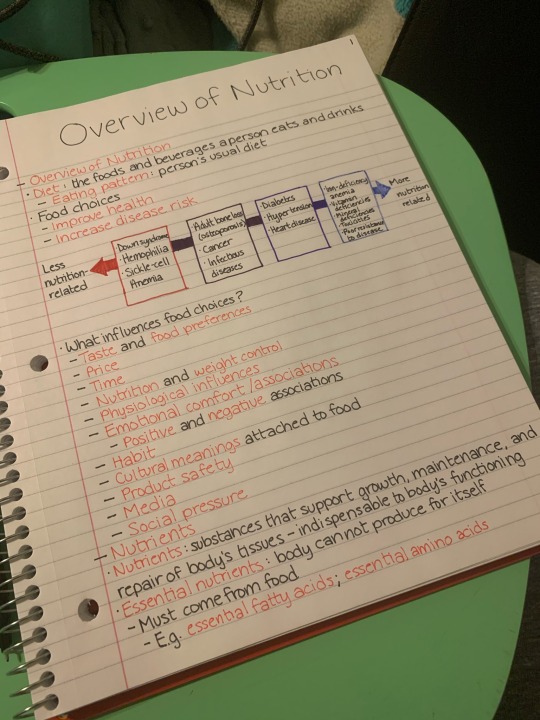 1
Overview of Nutrition
- Overview of Nutrition
· Diet: the foods and beverages a person eats and drinks
- Eating pattern: person's usual diet
· Food choices
- Improve health
- Increase disease risk
Less nutrition-related
Down syndrome
· Hemophilia
· Sickle-cell
Anemia
Adult bone loss
(osteoporosis)
· Cancer
· Infectious
diseases
Diabetes
Hypertension
· Heart disease
· Iron-deficiency
anemia
· Vitamin
deficiencies
· Mineral
deficiencies
· Toxicities
· Poor resistance
to disease
More
nutrition
related
· What influences food choices?
- Taste and food preferences
- Price
- Time
- Nutrition and weight control
- Physiological influences
- Emotional comfort/associations
- Positive and negative associations
- Habit
- Cultural meanings attached to food
- Product safety
- Media
- Social pressure
- Nutrients
· Nutrients: substances that support growth, maintenance, and
repair of body's tissues - indispensable to body's functioning
· Essential nutrients: body cannot produce for itself
- Must come from food
- E.g. essential fatty acids; essential amino acids